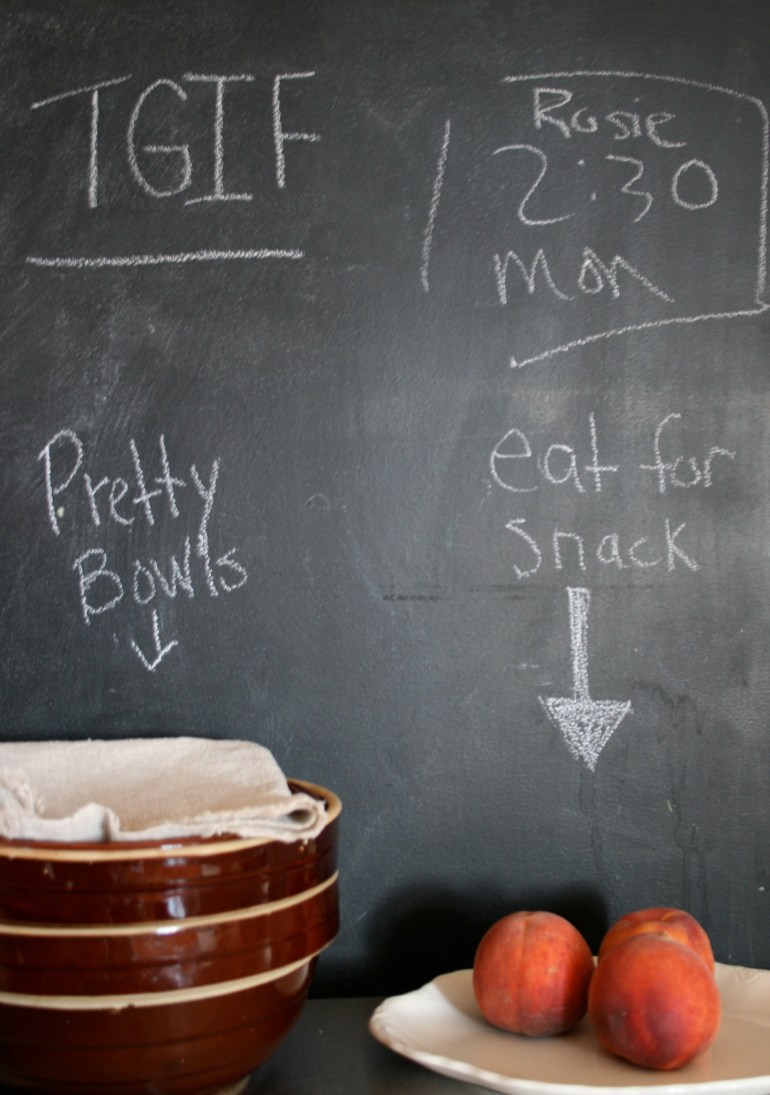 TGIF
Rosie
2:30
mon
Pretty
Bowls
eat for
snack